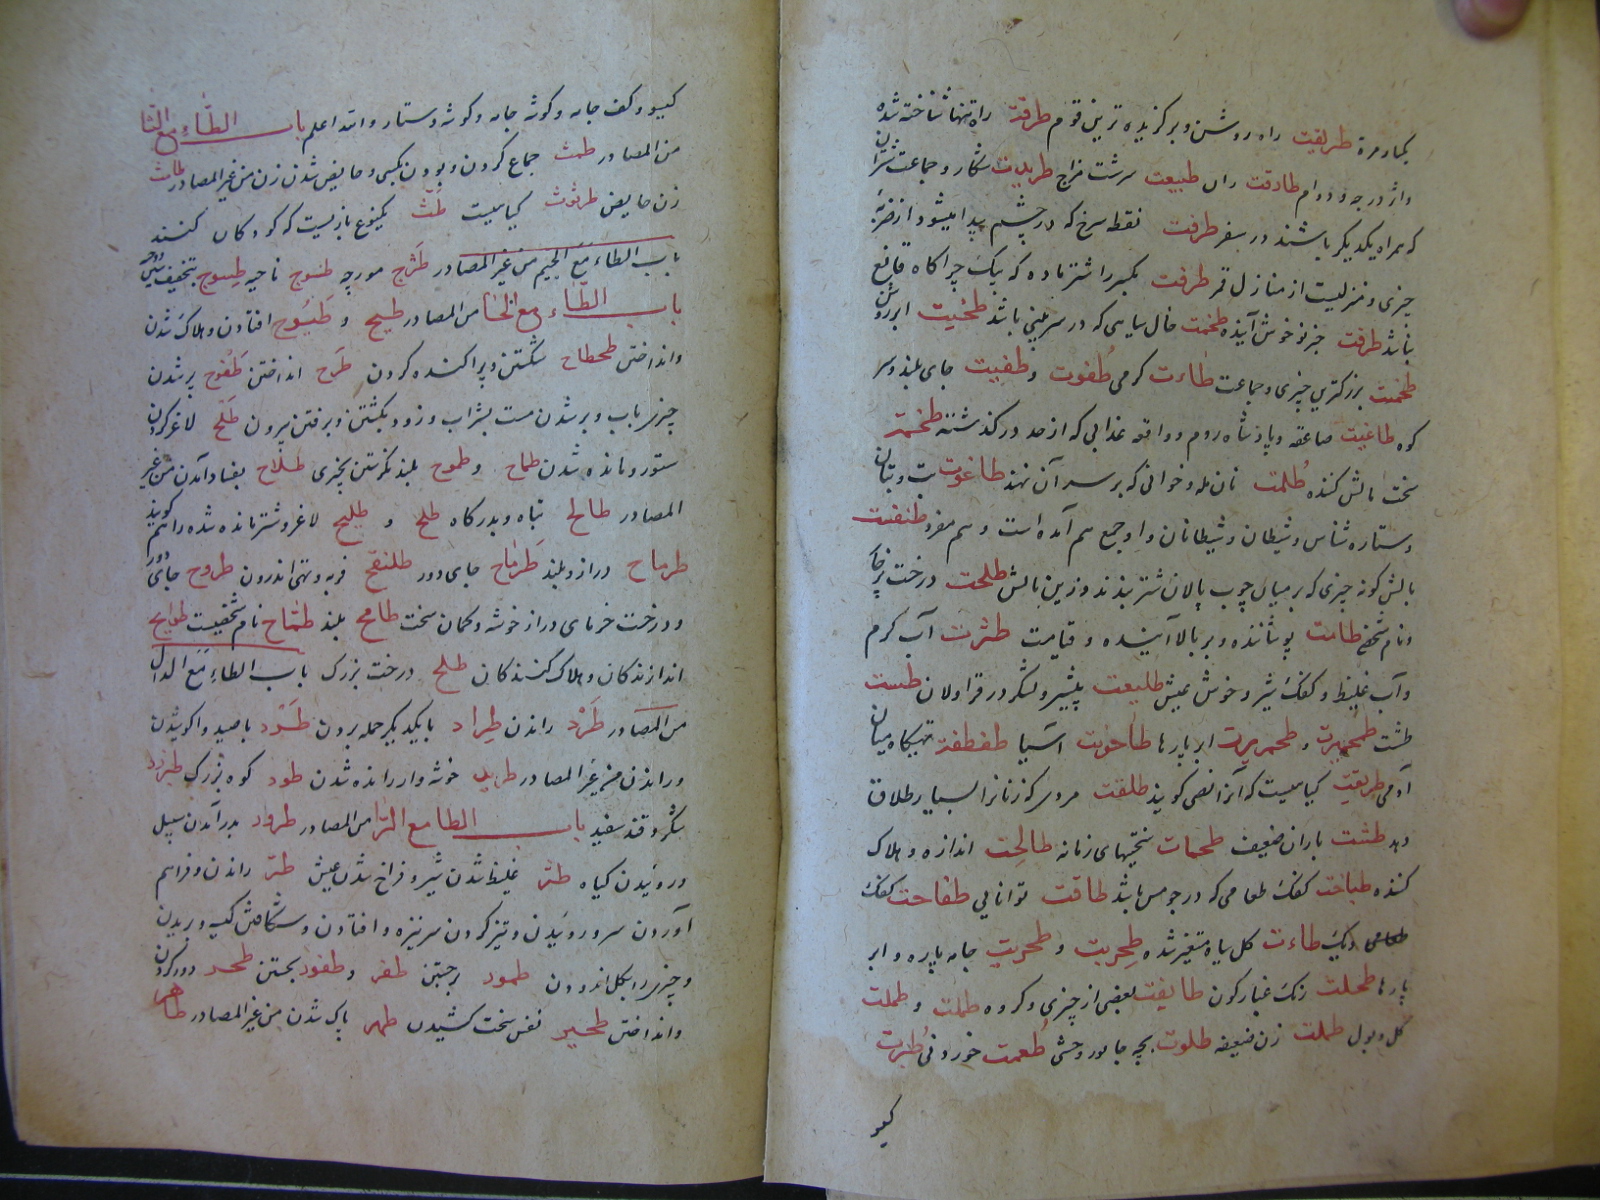 طریقت راه روشن و برگزیده ترین قوم طرقة راه تنها شناخته شده
و از در جه و دوام طادقت ران طبیعت سرشت مزاج طریدت شکار و جماعت شتران
که همراه یکدیگر باشند در سفر طرفت نقطه سرخ که در چشم پیدا میشود از ضربه
چیزی و منزلیست از منازل قمر طرفت بکسر را شتر ماده که بیک چراکاه قانع
نباشد طرفت چیز نو خوش آینده طخمت خال سیاهی که در سر بینی باشد طخیت ابر روشن
طخمت بزرکترین چیزی و جماعت طاءت کرمی طفوت و طفیت جای بلند و سر
کوه طاغیت صاعقه و پادشاه روم و واقعه عذابی که از حد در کذشته
سخت مالش کننده طلمت نان مله و خوانی که بر سر آن نهند طاغوت بت و بتان
و ستاره شناس و شیطان و شیطانان و او جمع هم آمده است و هم مفرد طنفست
بالش کونه چیزی که بر میان چوب پالان شتر بندند و زین بالش طلحت درخت پر خار
و نام شخصی طامت پوشاننده و بر بالا آینده و قیامت طثرت آب کرم
و آب غلیظ و کفک شیر و خوش عیش طلیعت پیشرو لشکر در قراولان طست
طشت و ابر پارها طاحونت آسیا طفطفة تهیکاه میان
آدمی طریقت کیاهیست که آنرا نصی کویند طلقت مردی که زنانرا بسیار طلاق
دهد طشت باران ضعیف طحمات سختیهای زمانه طالحت اندازه و هلاک
کننده طباخت کفک طعامی که در جوش باشد طاقت توانایی طفاحت کفک
دیک طاءت کل سیاه متغیر شده طحربت و طحربت جامه پاره و ابر
پارها طحلت رنک غبارکون طایفت بعضی از چیزی و کروه طملت و طملت
کل و بول طلت زن ضعیفه طلوت بچه جانور وحشی طعمت خوردنی طرت
کیسو
کیسو و کف جامه و کوشه جامه و کوشه دستار والله اعلم باب الطاء مع الثا
من المصادر طمث جماع کردن و بودن بکسی و حایض شدن زن من غیر المصادر طامث
زن حایض طرثوث کیاهیست طث یکنوع بازیست که کودکان کنند
باب الطاء مع الجیم من غیر المصادر طثرج مورچه طسوج ناحیه طسوج بتخفیف سین
باب الطاء مع الحا من المصادر طیح و طیوح افتادن و هلاک شدن
و انداختن طحطاح شکستن و پراکنده کردن طرح انداختن طفوح پر شدن
چیزی باب و پر شدن مست بشراب و زود بکشتن و برفتن بیرون طلح لاغر کردن
ستور و مانده شدن طماح و طموح بلند نکرستن بچیزی طلاح بفساد آمدن من غیر
المصادر طالح تباه و بدرکاه طلح و طلیح لاغر و شتر مانده شده را هم کویند
طرماح دراز و بلند طرماح جای دور طلنفح فربه و تهی اندرون طروح جای دور
و درخت خرمای دراز خوشه و کمان سخت طامح بلند طماح نام شخصیست طوایح
اندازندکان و هلاک کنندکان طلح درخت بزرک باب الطاء مع الدال
من المصادر طرد راندن طراد با یکدیکر حمله بردن طرد با صید واکوشیدن
و راندن من غیر المصادر طرید خوشه وار رانده شدن طود کوه بزرک طبرزد
شکر و قند سفید باب الطا مع الرا من المصادر طرور بدر آمدن سبیل
و روئیدن کیاه طثر غلیظ شدن شیر و فراخ شدن عیش طر راندن و فراهم
آوردن سر و روئیدن و تیز کردن سر نیزه و افتادن و شکافتن کیسه و بریدن
و چیزی را بکل اندودن طمور برجستن طفر و طفور بجستن طحر دور کردن
و انداختن طحیر نفس سخت کشیدن طهر پاک شدن من غیر المصادر طاهر